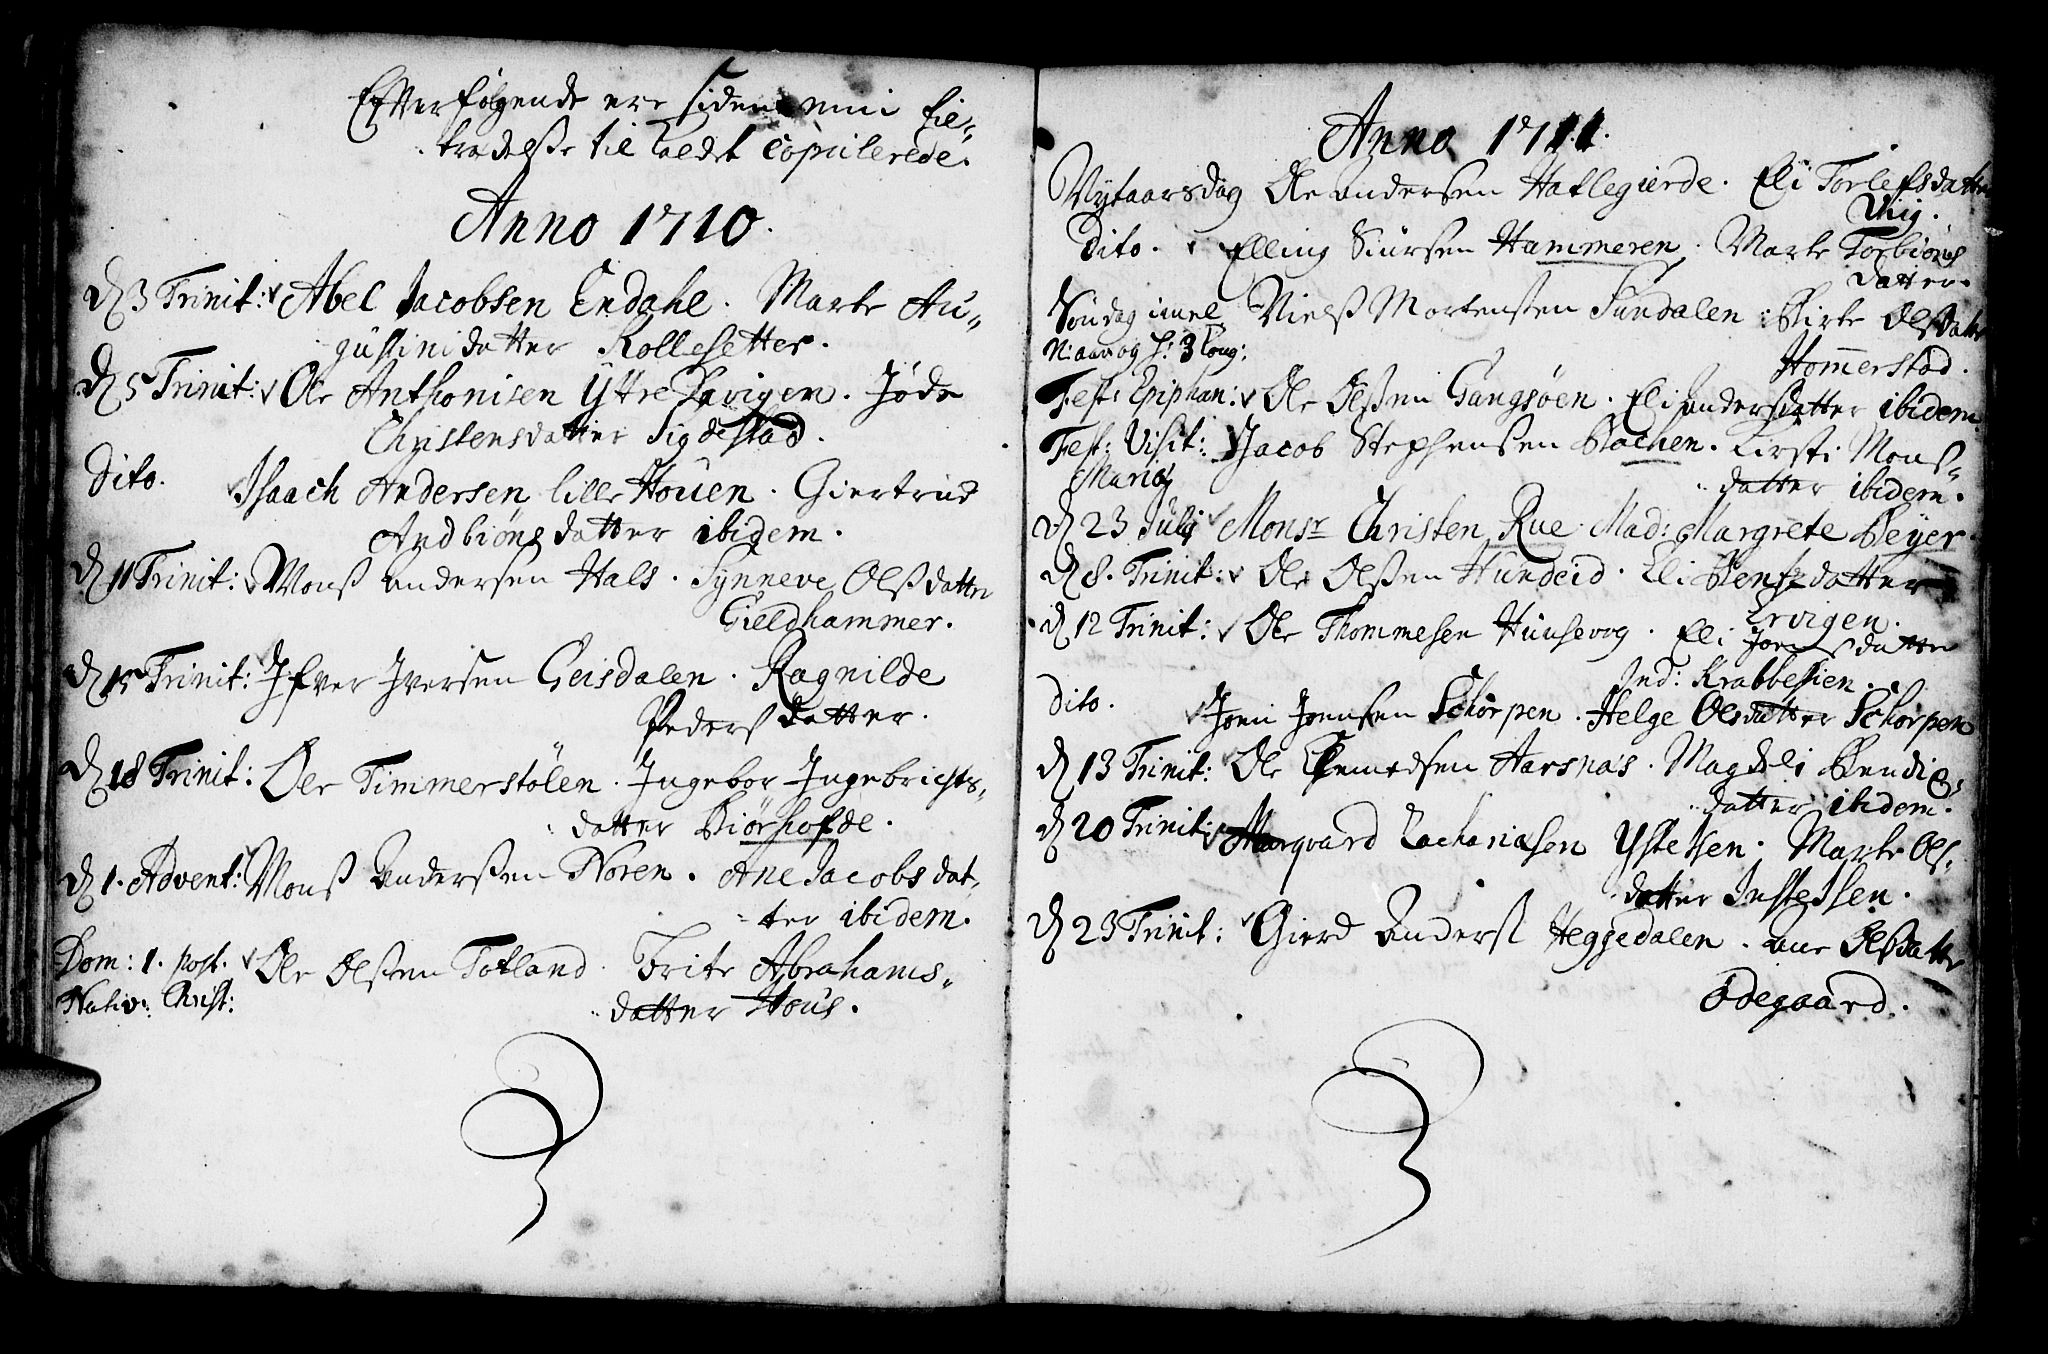 Effterfølgende ere siden min tie-
tredelße til Caldet Copulerede.
Anno 1710.
D 3 Trinit: Abel Jacobsen Endahl. Marte Au-
gustini datter Kollesetter.
D 5 Trinit: Ole Anthonisen Yttre Hervigen. Jøde
Christensdatter Sigdestad.
Dito. Isaach Andersen lille Houen. Giertrud
Andbiøns datter ibidem.
D 11 Trinit: Monß Andersen Hals. Synneve Olßdatter
Gieldhammer.
D 15 Trinit: Ifver Iversen Geisdalen. Ragnilde
Pederß datter.
D 18 Trinit: Ole Timmerstölen. Ingebor Ingebrichts-
datter Biørhofde.
D 1. Advent: Monß Anderßen Noren. Ane Jacobs dat-
ter ibidem.
Dom: 1. post. Ole Olßen Totland. Frite Abrahams-
Nativ: Christ: datter Hous.
Anno 1711.
Nytaarsdag Ole Andersen Hatlegierde. Eli Torlefsdatter
Viig.
Dito. Elling Siursen Hammeren. Marte Torbiøns
datter.
Søndag imel Nielß Mortenßen Sundalen. Birte Olßdatter
N: aar og H: 3 Kong: Hommerstad.
Fest: Epiphan: Ole Olßen Gangsøen. Eli Andersdatter ibidem.
Fest: Visit: Jacob Stephensen Bachen. Kirsti Mons-
Mariæ datter ibidem.
D 23 Julij Monsr Christen Rue. Mad: Margrete Beyer.
D 8. Trinit: Ole Olßen Hundeid. Eli Bentz datter
Ervigen.
D 12 Trinit: Ole Thommesen Huusevog. Eli Joensdatter
Ind: Krabbestien.
Dito. Joen Joensen Schorpen. Helge Olsdatter Schorpen
D 13 Trinit: Ole Clemedsen Aarsnas. Magdeli Bendix-
datter ibidem.
D 20 Trinit: Marqvard Zachariasen Ystebsen. Marte Ols-
datter Instebsen.
D 23 Trinit: Gierd Anderß Heggedalen. Ane Olßdatter
Ödegaard.